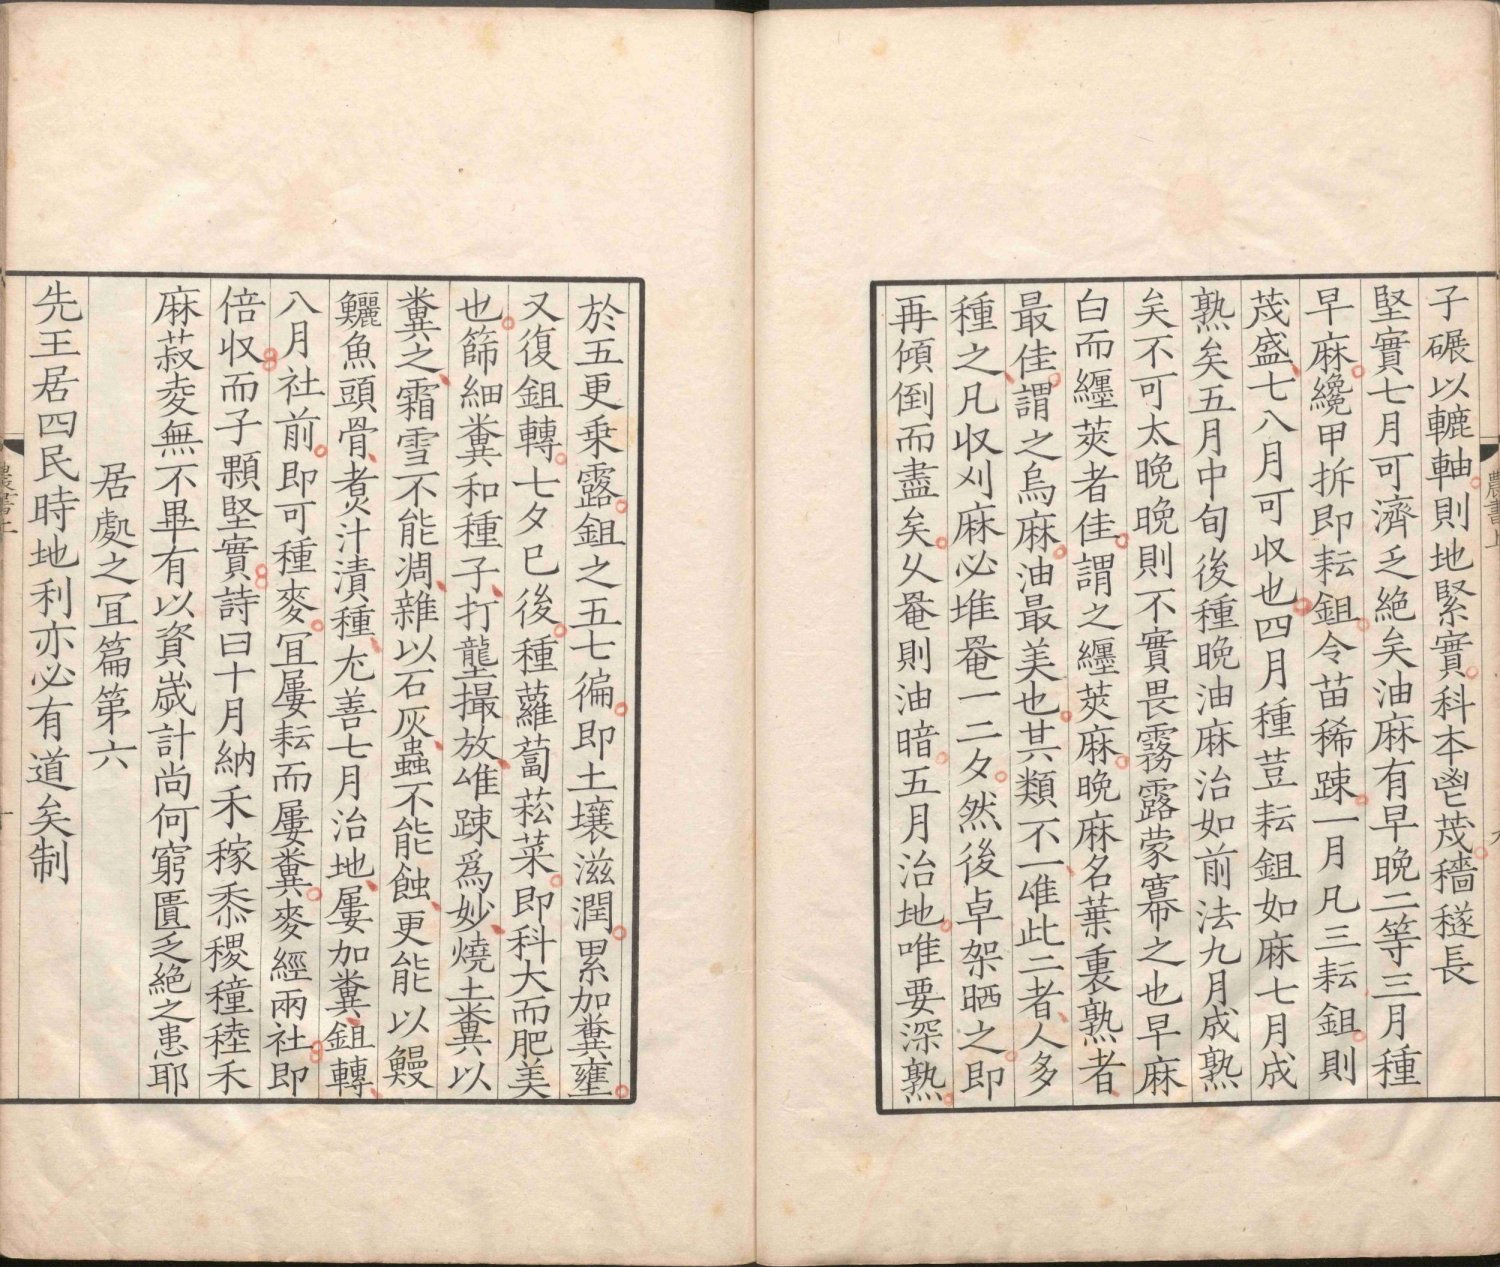 子碾以轆軸則地緊實科本鬯茂穡穟長
堅實七月可濟乏絕矣油麻有早晚二等三月種
早麻纔甲拆即耘鉏令苗稀踈一月凡三耘鉏則
茂盛七八月可収也四月種荳耘鉏如麻七月成
熟矣五月中旬後種晚油麻治如前法九月成熟
矣不可太晚晚則不實畏霧露蒙冪之也早麻
白而纏莢者佳謂之纏莢麻晚麻名葉裏熟者
最佳謂之烏麻油最美也其類不一唯此二者人多
種之凡収刈麻必堆罨一二夕然後卓架晒之即
再傾倒而盡矣乆罨則油暗五月治地唯要深熟
於五更乗露鉏之五七徧即土壤滋潤累加糞壅
又復鉏轉七夕已後種蘿蔔菘菜即科大而肥美
也篩細糞和種子打壟撮放唯踈爲妙燒土糞以
糞之霜雪不能凋雜以石灰蟲不能蝕更能以鰻
鱺魚頭骨煮汁漬種尤善七月治地屢加糞鉏轉
八月社前即可種麥冝屢耘而屢糞麥經兩社即
倍収而子顆堅實詩曰十月納禾稼黍稷穜稑禾
麻菽麥無不畢有以資嵗計尚何窮匱乏絕之患耶
居處之冝篇第六
先王居四民時地利亦必有道矣制
農書上
九
農書上
十